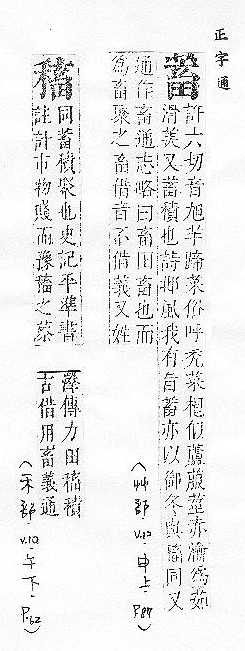 正字通
蓄 許六切音旭羊蹄菜俗呼禿菜根似蘆菔莖赤瀹為茹
滑美又蓄積也詩邶風我有旨蓄亦以御冬與稸同又
通作畜通志略曰畜田畜也而
為畜聚之畜借音不借義又姓
(艸部 v.12 申上 P.87)
稸 同蓄積聚也史記平準書
註計市物賤而豫稸之蔡
澤傳力田稸積
古借用畜義通
(禾部 v.10 午下 P.62)